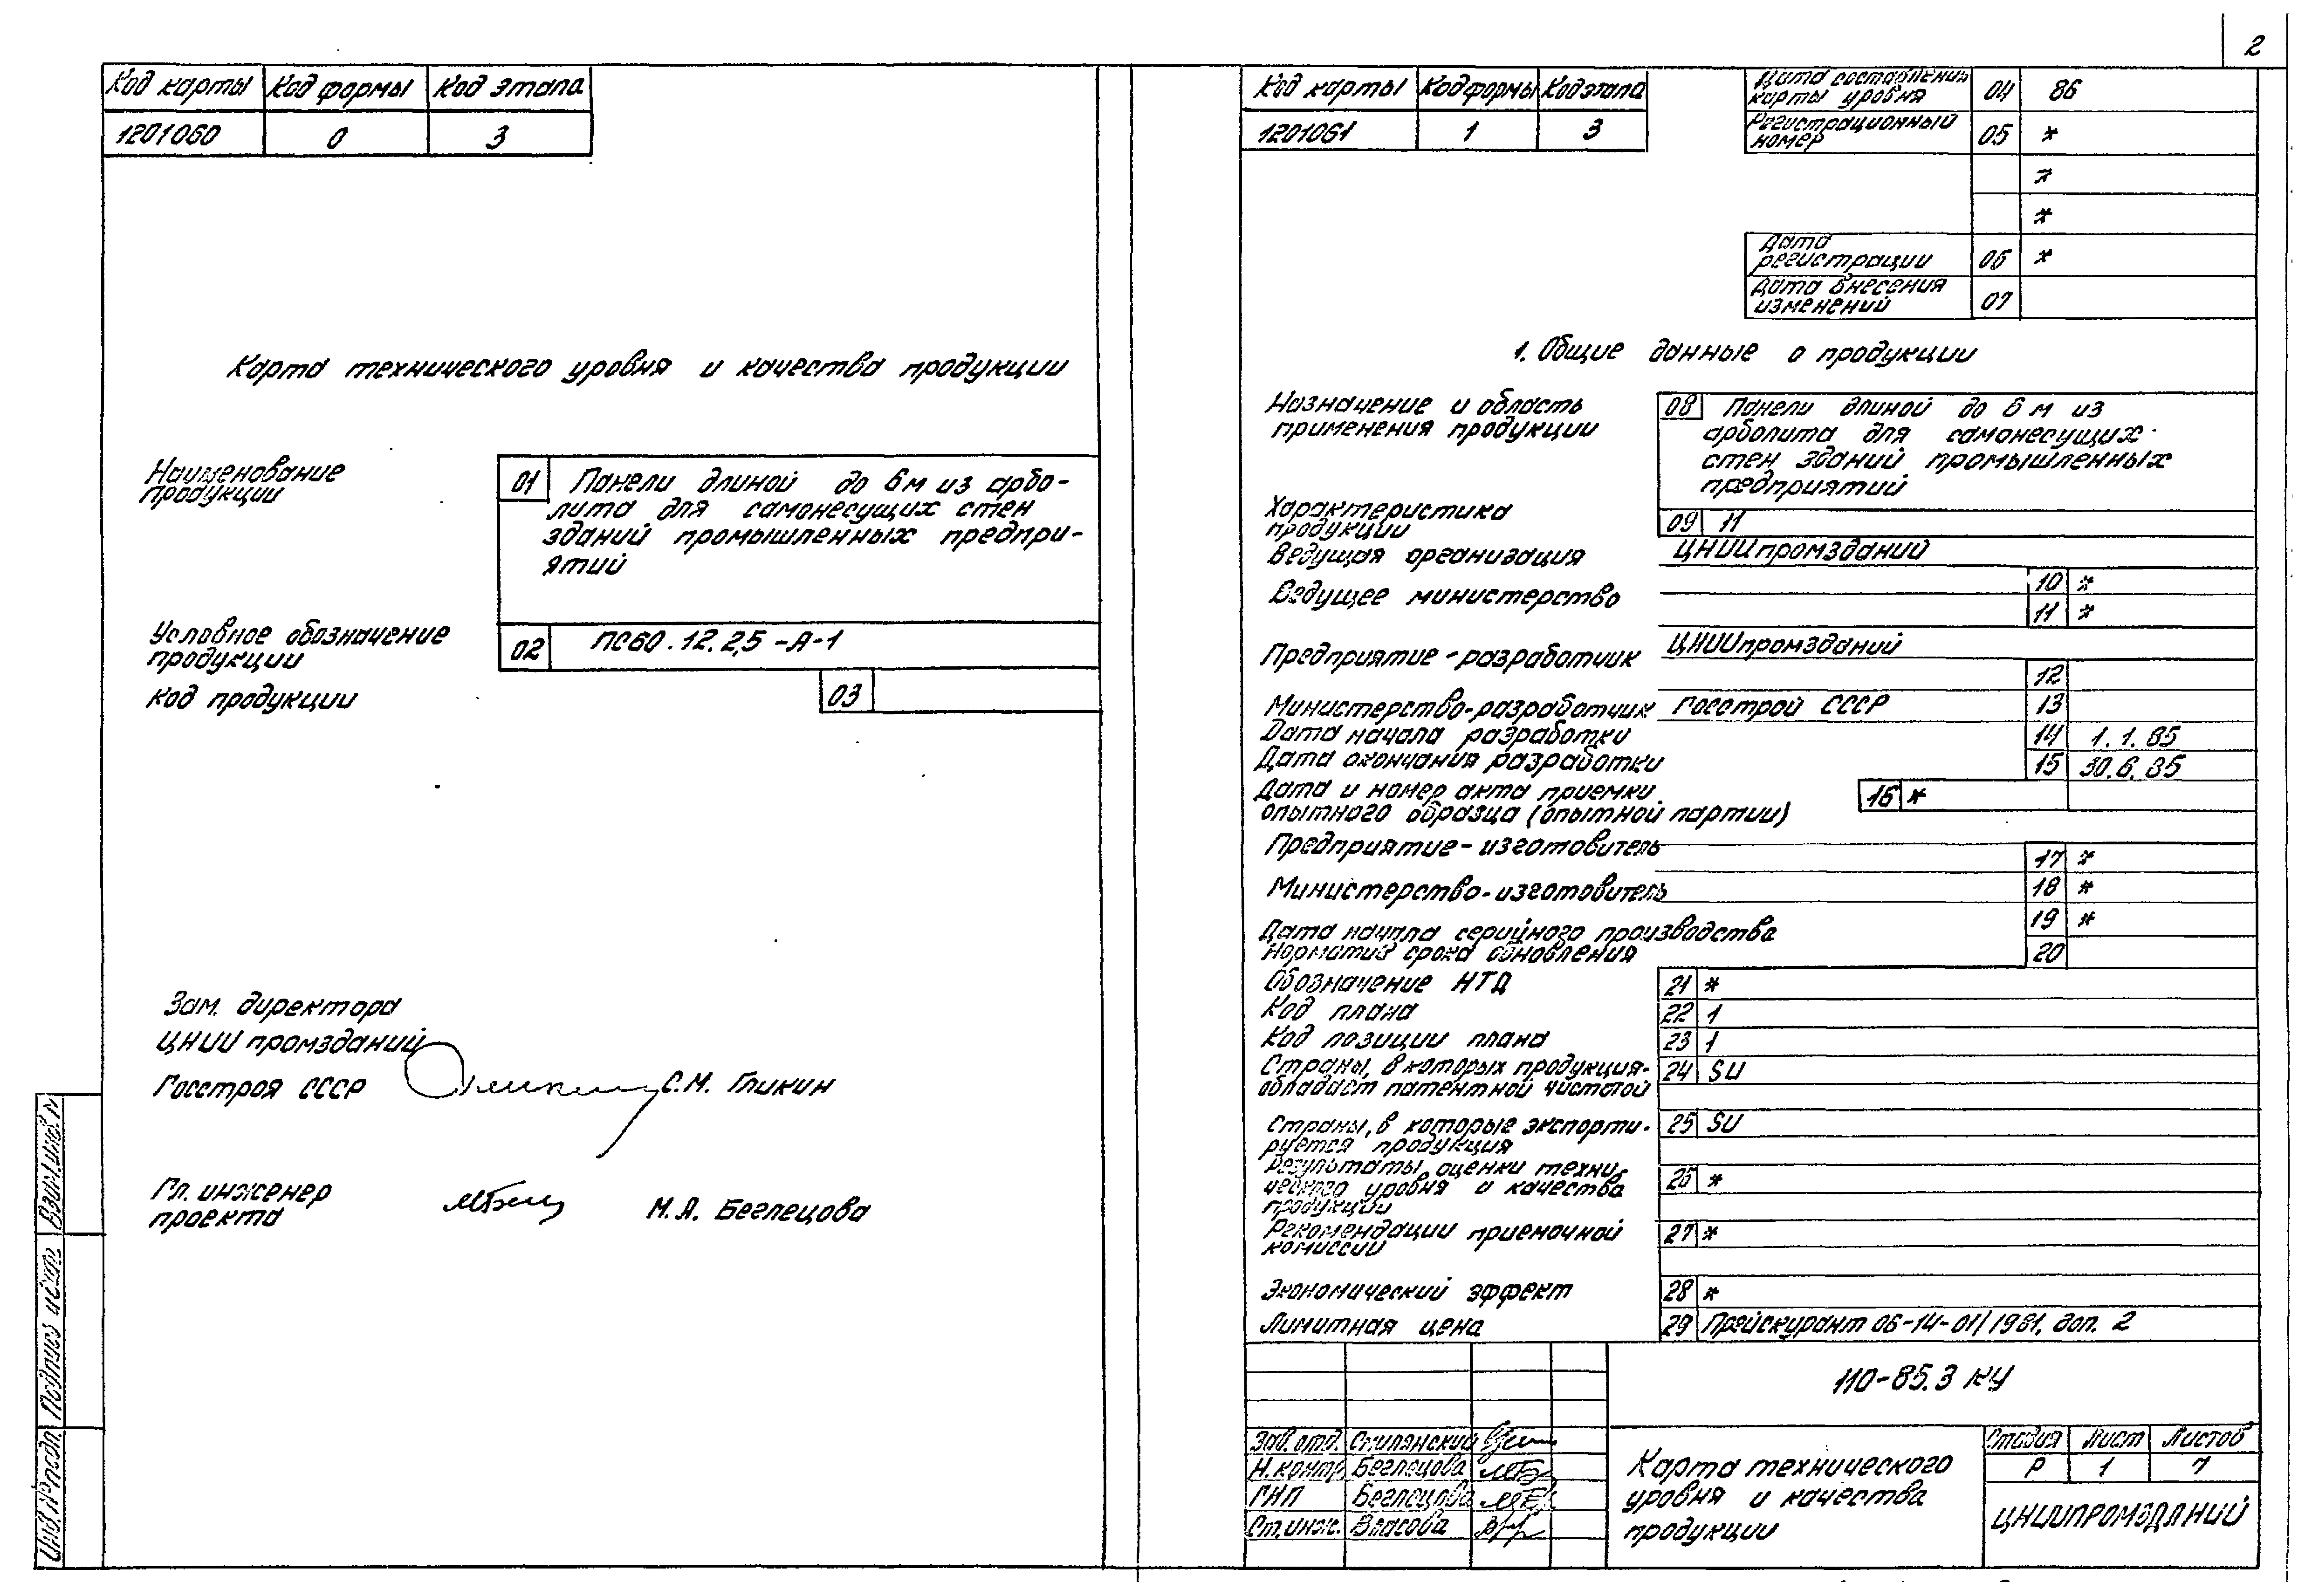 2
Код карты Код формы Код этапа
1201060 0 3
Карта технического уровня и качества продукции
Наименование
продукции
01 Панели длиной до 6 м из арбо-
лита для самонесущих стен
зданий промышленных предпри-
ятий
Условное обозначение
продукции
02 ПС60.12.2,5-А-1
Код продукции 03
Зам. директора
ЦНИИпромзданий
Госстроя СССР С.М. Гликин
Гл. инженер
проекта М.А. Беглецова
Взам. инв. №
Подпись и дата
Инв. № подл.
Код карты Код формы Код этапа
1201061 1 3
Дата составления
карты уровня 04 86
Регистрационный
номер 05 *
*
*
Дата
регистрации 06 *
Дата внесения
изменений 07
1. Общие данные о продукции
Назначение и область
применения продукции
08 Панели длиной до 6 м из
арболита для самонесущих
стен зданий промышленных
предприятий
Характеристика
продукции 09 11
Ведущая организация ЦНИИпромзданий
10 *
Ведущее министерство
11 *
Предприятие-разработчик ЦНИИпромзданий
12
Министерство-разработчик Госстрой СССР 13
Дата начала разработки 14 1.1.85
Дата окончания разработки 15 30.6.85
Дата и номер акта приемки
опытного образца (опытной партии) 16 *
Предприятие-изготовитель 17 *
Министерство-изготовитель 18 *
Дата начала серийного производства 19 *
Норматив срока обновления 20
Обозначение НТД 21 *
Код плана 22 1
Код позиции плана 23 1
Страны, в которых продукция
обладает патентной чистотой 24 SU
Страны, в которые экспорти-
руется продукция 25 SU
Результаты оценки техни-
ческого уровня и качества
продукции 26 *
Рекомендации приемочной
комиссии 27 *
Экономический эффект 28 *
Лимитная цена 29 Прейскурант 06-14-01/1981, доп. 2
110-85.3 КУ
Зав. отд. Смилянский
Н. контр. Беглецова
ГИП Беглецова
Ст. инж. Власова
Карта технического
уровня и качества
продукции
Стадия Лист Листов
Р 1 7
ЦНИИПРОМЗДАНИЙ